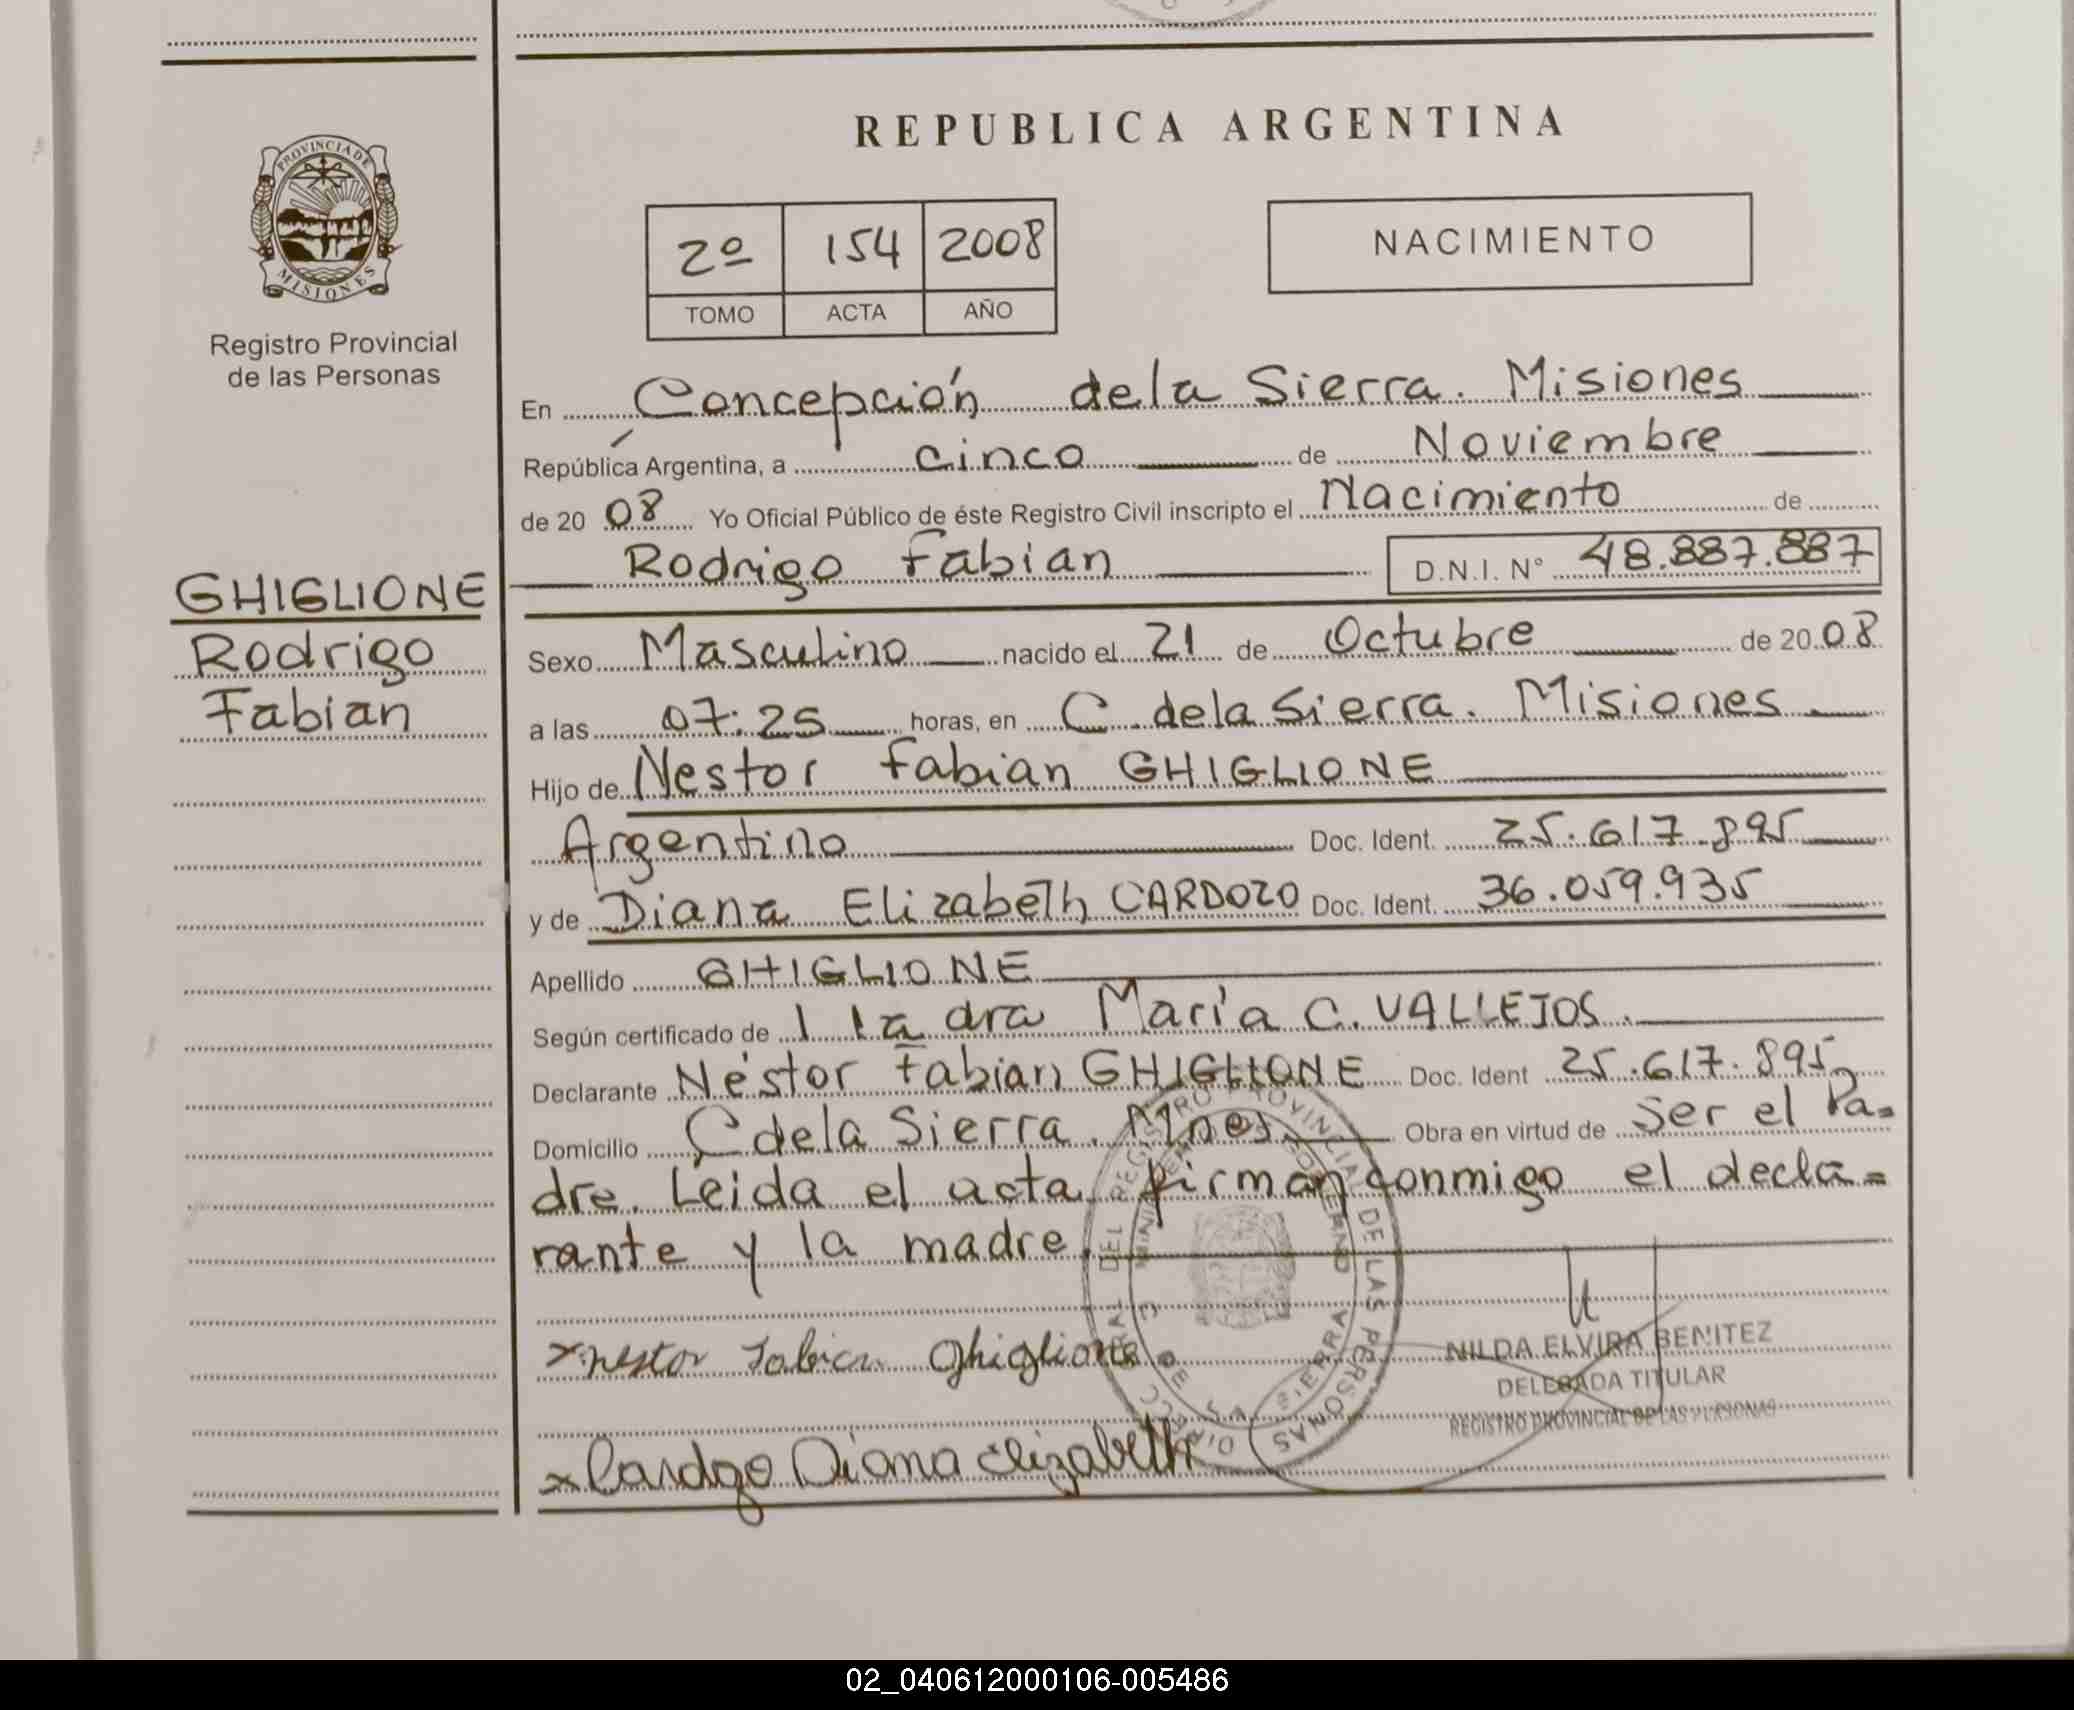 REPUBLICA ARGENTINA
PROVINCIA DE
MISIONES
Registro Provincial
de las Personas
2º 154 2008
TOMO ACTA AÑO
NACIMIENTO
En Concepción de la Sierra. Misiones
República Argentina, a cinco de Noviembre
de 20 08 Yo Oficial Público de éste Registro Civil inscripto el Nacimiento de
Rodrigo Fabian D.N.I. Nº 48.887.887
GHIGLIONE
Rodrigo
Fabian
Sexo Masculino nacido el 21 de Octubre de 20 08
a las 07:25 horas, en C. de la Sierra. Misiones.
Hijo de Nestor Fabian GHIGLIONE
Argentino Doc. Ident. 25.617.895
y de Diana Elizabeth CARDOZO Doc. Ident. 36.059.935
Apellido GHIGLIONE
Según certificado de la dra María C. VALLEJOS.
Declarante Néstor Fabian GHIGLIONE Doc. Ident 25.617.895
Domicilio C de la Sierra. Mnes. Obra en virtud de ser el Pa=
dre. Leida el acta firman conmigo el decla=
rante y la madre.
x nestor Fabian Ghiglione
NILDA ELVIRA BENITEZ
DELEGADA TITULAR
REGISTRO PROVINCIAL DE LAS PERSONAS
x Cardozo Diana Elizabeth
DEL REGISTRO PROVINCIAL DE LAS PERSONAS
DE LA SIERRA
02_040612000106-005486